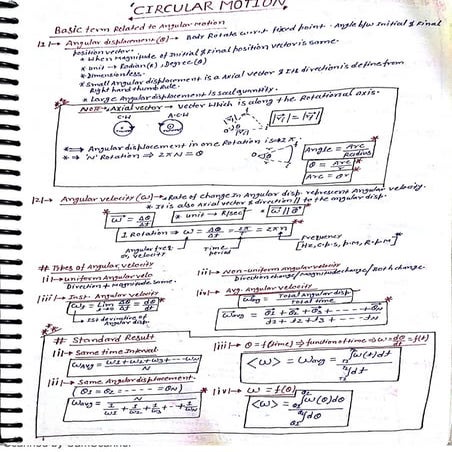 CIRCULAR MOTION
Basic term Related to Angular motion
|1|→ Angular displacement(θ) → Body Rotate w.r.t fixed point. Angle b/w Initial & Final
position vector.
* When Magnitude of Initial & Final position vector is same.
* unit → Radian(R), Degree(θ)
* Dimensionless.
* Small Angular displacement is a Axial vector & Its direction is define from
Right hand thumb Rule.
* Large Angular displacement is scal quantity.
NOTE → Axial vector → vector which is along the Rotational axis.
C·W A·C·W
* ⇒ Angular displacement in one Rotation is → 2π.
* ⇒ 'N' Rotation ⇒ 2πN = θ
Angle = Arc/Radius
θ = Arc/r
Arc = θr
|2|→ Angular velocity (ω) → * Rate of change in Angular disp. represent Angular velocity.
* It is also Axial vector & direction // to the angular disp.
ω = Δθ/Δt
* unit → R/sec
1 Rotation ⇒ ω = Δθ/Δt = 2π/T = 2πn
Angular freq or velocity
Time period
Frequency
# Types of Angular velocity
|i|→ uniform Angular velo
Direction + Magnitude same.
|ii|→ Non-uniform Angular velocity
Direction change/Magnitude change/Both change.
|iii|→ Inst. Angular velocity
|iv|→ Avg. Angular velocity
ωavg = Total Angular disp/Total time
# Standard Result
|i|→ Same time Interval
ωavg = ω1+ω2+ω3+----ωN/N
|ii|→ Same Angular displacement
(θ1=θ2=-----=θN)
ωavg = N/1/ω1+1/ω2+1/ω3+--+1/ωN
|iii|→ θ = f(time) ⇒ function of time ⇒ ω = dθ/dt = f(t)
<ω> = ωavg = ∫ω(t)dt/∫dt
|iv|→ ω = f(θ)